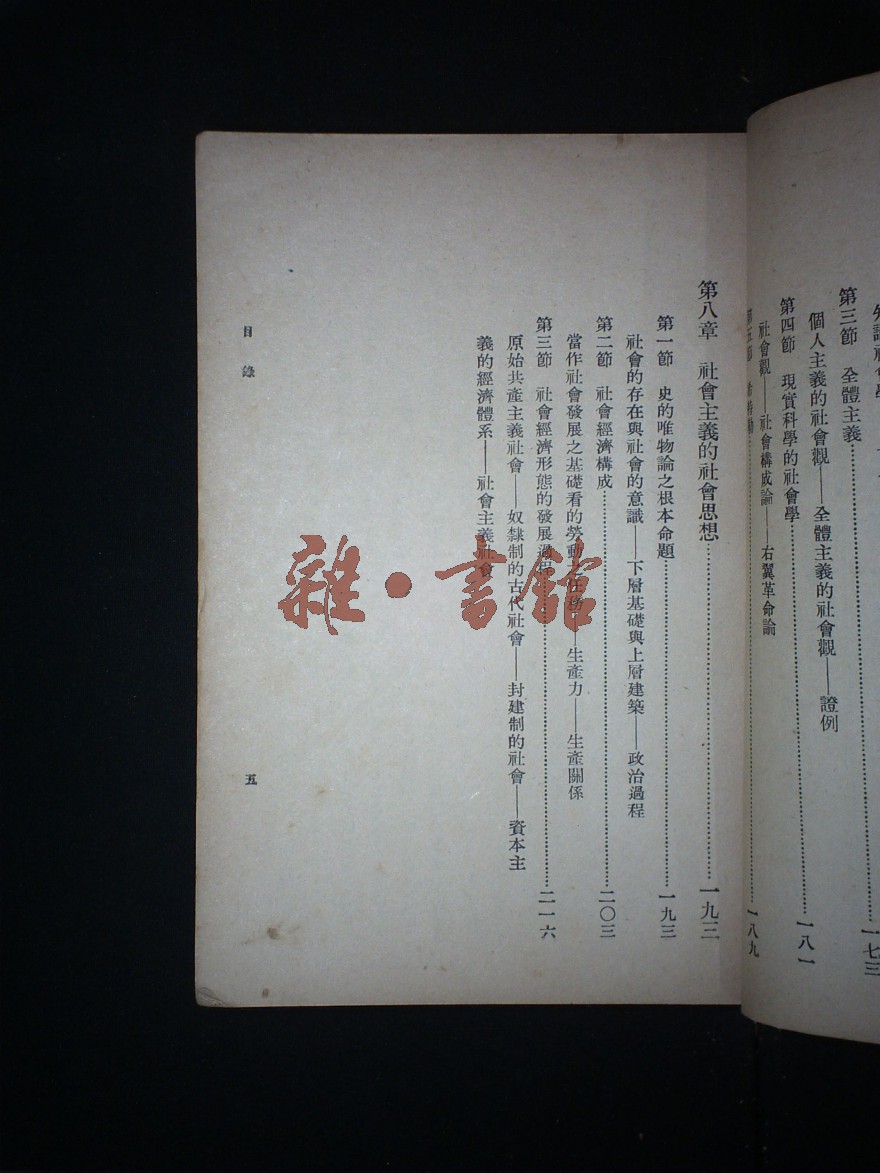 第三節　全體主義……一七三
個人主義的社會觀——全體主義的社會觀——證例
第四節　現實科學的社會學……一八一
社會觀——社會構成論——右翼革命論
一八九
第八章　社會主義的社會思想……一九三
第一節　史的唯物論之根本命題……一九三
社會的存在與社會的意識——下層基礎與上層建築——政治過程
第二節　社會經濟構成……二〇三
當作社會發展之基礎看的勞動之任務——生產力——生產關係
第三節　社會經濟形態的發展過程……二一六
原始共產主義社會——奴隸制的古代社會——封建制的社會——資本主
義的經濟體系——社會主義社會
目錄
五
雜·書館